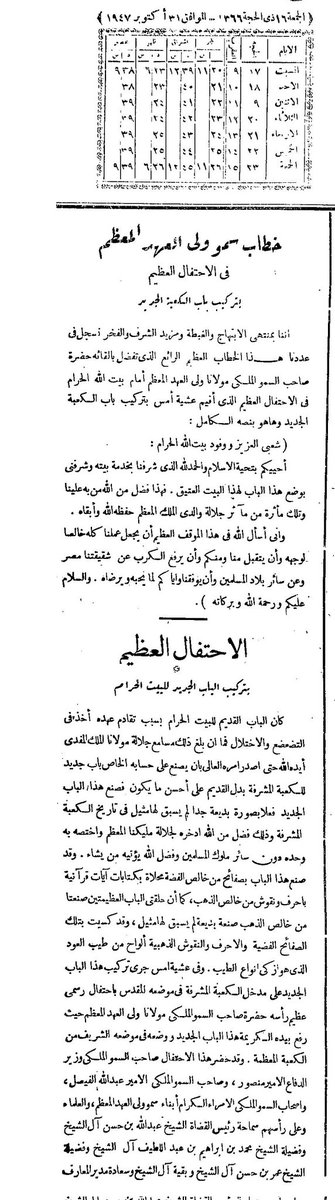 (الجمعة ١٦ ذى الحجة ١٣٦٦ — الموافق ٣١ أكتوبر ١٩٤٧)
الايام
السبت ١٧
الاحد ١٨
الاثنين
الثلاثاء ٢٠
الاربعاء ٢١
الخميس ٢٢
الجمعة ٢٣
خطاب سمو ولى العهد المعظم
فى الاحتفال العظيم
بتركيب باب الكعبة الجديد
اننا بمنتهى الابتهاج والغبطة ومزيد الشرف والفخر نسجل فى
عددنا هـــذا الخطاب العظيم الرائع الذى تفضل بالقائه حضرة
صاحب السمو الملكى مولانا ولى العهد المعظم أمام بيت الله الحرام
فى الاحتفال العظيم الذى أقيم عشية أمس بتركيب باب الكعبة
الجديد وهاهو بنصه الكامل :
(شعبى العزيز ووفود بيت الله الحرام :
أحييكم بتحية الاسلام والحمدلله الذى شرفنا بخدمة بيته وشرفنى
بوضع هذا الباب لهذا البيت العتيق . فهذا فضل من الله من به علينا
وتلك مأثرة من مآثر جلالة والدى الملك المعظم حفظه الله وأبقاه .
وانى أسأل الله فى هذا الموقف العظيم أن يجعل عملنا كله خالصا
لوجهه وأن يتقبل منا ومنكم وأن يرفع الكرب عن شقيقتنا مصر
وعن سائر بلاد المسلمين وأن يوفقنا واياكم لما يحبه ويرضاه . والسلام
عليكم ورحمة الله وبركاته ) .
الاحتفال العظيم
بتركيب الباب الجديد للبيت الحرام
كان الباب القديم للبيت الحرام بسبب تقادم عهده أخذ فى
التضعضع والاختلال فما ان بلغ ذلك مسامع جلالة مولانا الملك المفدى
أيده الله حتى اصدر امره العالى بان يصنع على حسابه الخاص باب جديد
للكعبة المشرفة بدل القديم على أحسن ما يكون فصنع هذا الباب
الجديد فعلا بصورة بديعة جدا لم يسبق لها مثيل فى تاريخ الكعبة
المشرفة وذلك فضل من الله ادخره لجلالة مليكنا المعظم واختصه به
وحده دون سائر ملوك المسلمين وفضل الله يؤتيه من يشاء . وقد
صنع هذا الباب بصفائح من خالص الفضة محلاة بكتابات آيات قرآنية
باحرف ونقوش من خالص الذهب ، كما أن حلقتى الباب العظيمتين صنعتا
من خالص الذهب صنعة بديعة لم يسبق لها مثيل ، وقد كسيت بتلك
الصفائح الفضية والاحرف والنقوش الذهبية ألواح من طيب العود
الذى هو ازكى انواع الطيب . وفى عشية امس جرى تركيب هذا الباب
الجديد على مدخل الكعبة المشرفة فى موضعه المقدس باحتفال رسمى
عظيم رأسه حضرة صاحب السمو الملكى مولانا ولى العهد المعظم حيث
رفع بيده الكريمة هذا الباب الجديد ووضعه فى موضعه الشريف من
الكعبة المعظمة . وقد حضر هذا الاحتفال صاحب السمو الملكى وزير
الدفاع الامير منصور ، وصاحب السمو الملكى الامير عبدالله الفيصل ،
واصحاب السمو الملكى الامراء الكرام أبناء سمو ولى العهد المعظم ، والعلماء
وعلى رأسهم سماحة رئيس القضاة الشيخ عبدالله بن حسن آل الشيخ
وفضيلة الشيخ محمد بن ابراهيم بن عبد اللطيف آل الشيخ وفضيلة
الشيخ عمر بن حسن آل الشيخ وبقية آل الشيخ وسعادة مدير المعارف